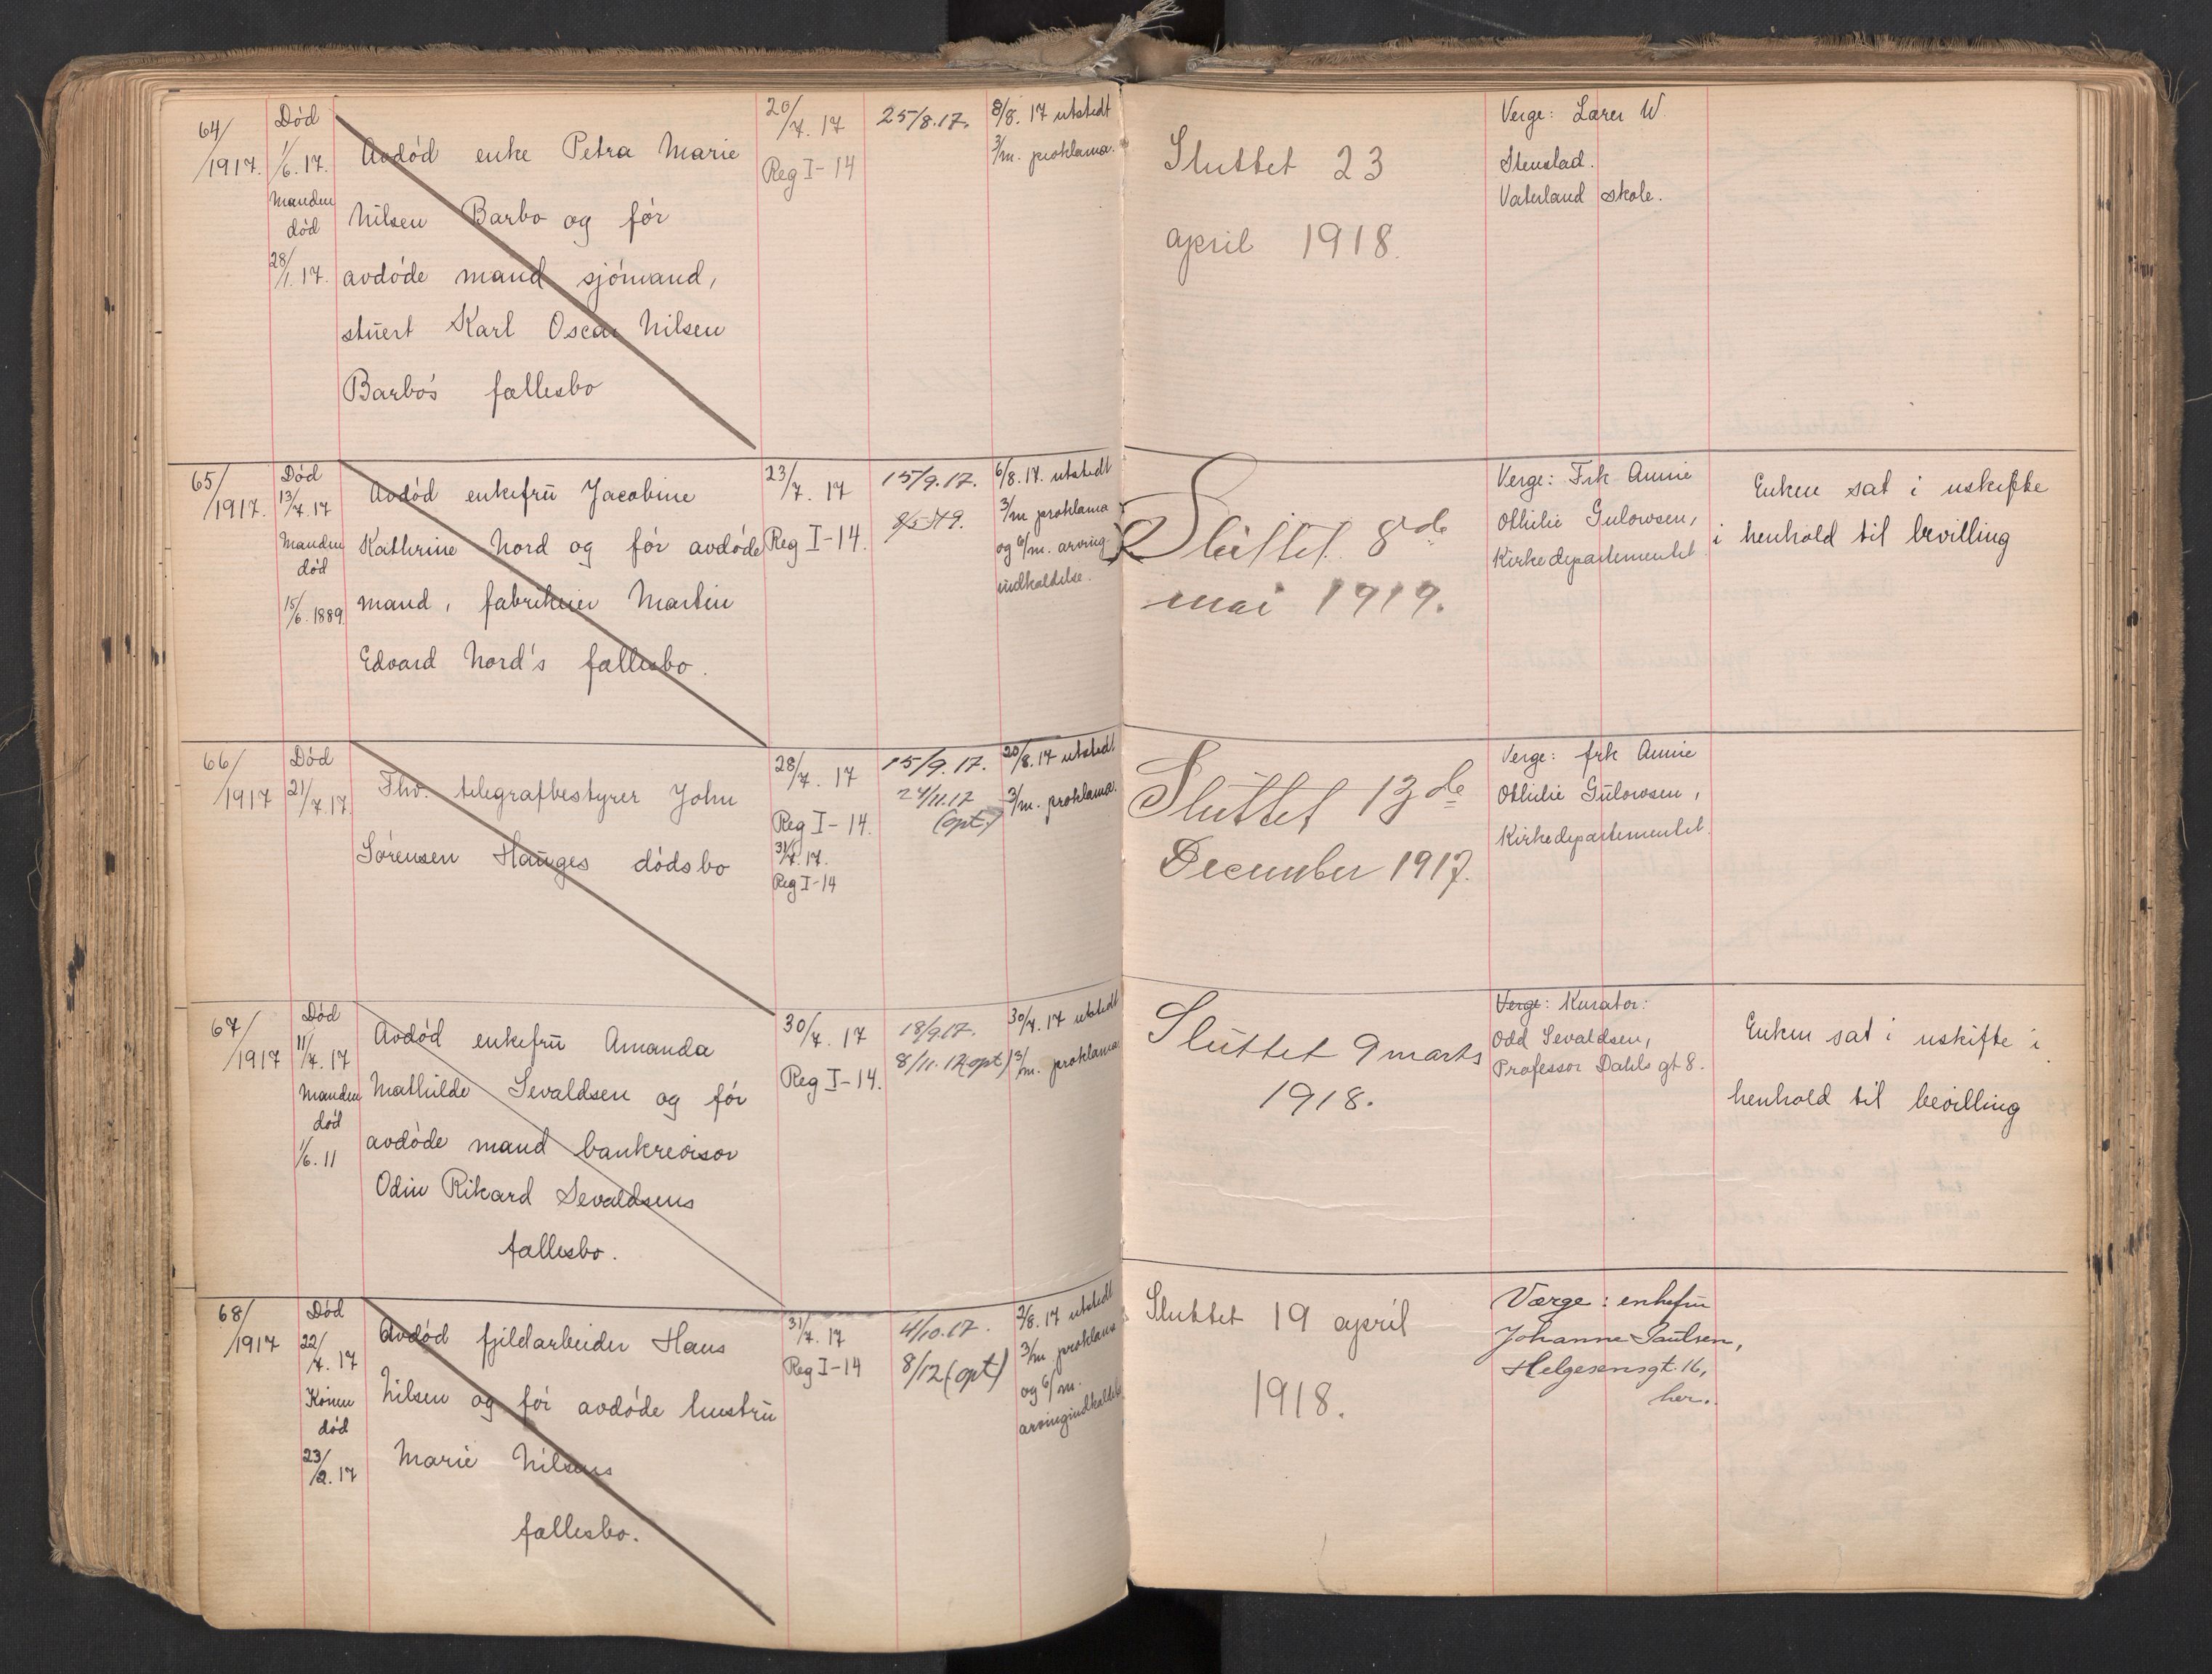 64/
1917.
Död
1/6. 17.
Manden
död
28/1. 17.
Avdöd enke Petra Marie
Nilsen Barbo og för
avdöde mand sjömand,
stuert Karl Oscar Nilsen
Barbo's fællesbo
20/7. 17
Reg I-14
25/8.17.
8/8. 17 utstedt
3/m. proklama.
Sluttet 23
april 1918.
Verge: Lærer W
Stenstad.
Vaterland skole.
65/
1917.
Död
13/7. 17
Manden
död
15/6. 1889.
Avdöd enkefrü Jacobine
Kathrine Nord og för avdöde
mand, fabrikeier Martin
Edvard Nord's fællesbo.
23/7. 17
Reg I-14.
15/9. 17.
8/5 19.
6/8. 17. utstedt
3/m proklama
og 6/m. arving-
indkaldelse.
Slüttet 8de
mai 1919.
Verge: Frk Annie
Othilie Gulowsen,
Kirkedepartementet
Enken sat i uskifte
i henhold til bevilling
66/
1917
Död
21/7. 17.
Fhv. telegrafbestyrer John
Sörensen Haüges dödsbo
28/7. 17
Reg I-14.
31/7. 17.
Reg I-14
15/9. 17.
24/11.17
(opt.)
20/8. 17 utstedt.
3/m. proklama.
Slüttet 13de
December 1917.
Verge: frk Annie
Othilie Gülowsen,
Kirkedepartementet.
67/
1917
Död
11/7. 17
Manden
död
1/6. 11
Avdöd enkefrü Amanda
Mathilde Sevaldsen og för
avdöde mand bankrevisor
Odin Rikard Sevaldsens
fællesbo.
30/7. 17
Reg I-14.
18/9.17.
8/11. 17(opt)
30/7. 17 utstedt
3/m. proklama
Slüttet 9 marts
1918.
Verge: Kurator:
Odd Sevaldsen,
Professor Dahls gt 8.
Enken sat i uskifte i
henhold til bevilling
68/
1917
Död
22/7. 17
Konen
död
23/2. 17
Avdöd fjeldarbeider Hans
Nilsen og för avdöde hustrü
Marie Nilsens
fællesbo.
31/7. 17
Reg I-14
4/10.17.
8/12 (opt)
2/8. 17 utstedt
3/m proklama
og 6/m.
arvingindkaldelse
Sluttet 19 april
1918.
Værge: enkefru
Johanne Paulsen,
Helgesensgt. 16,
her.